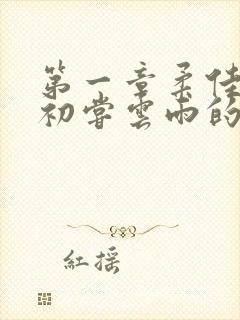 第一章柔佳
初尝雲雨的
紅摇